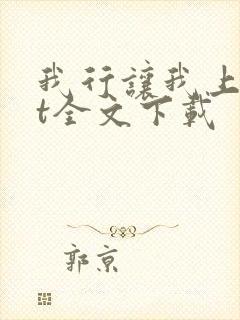 我行讓我上
t全文下載
郭京